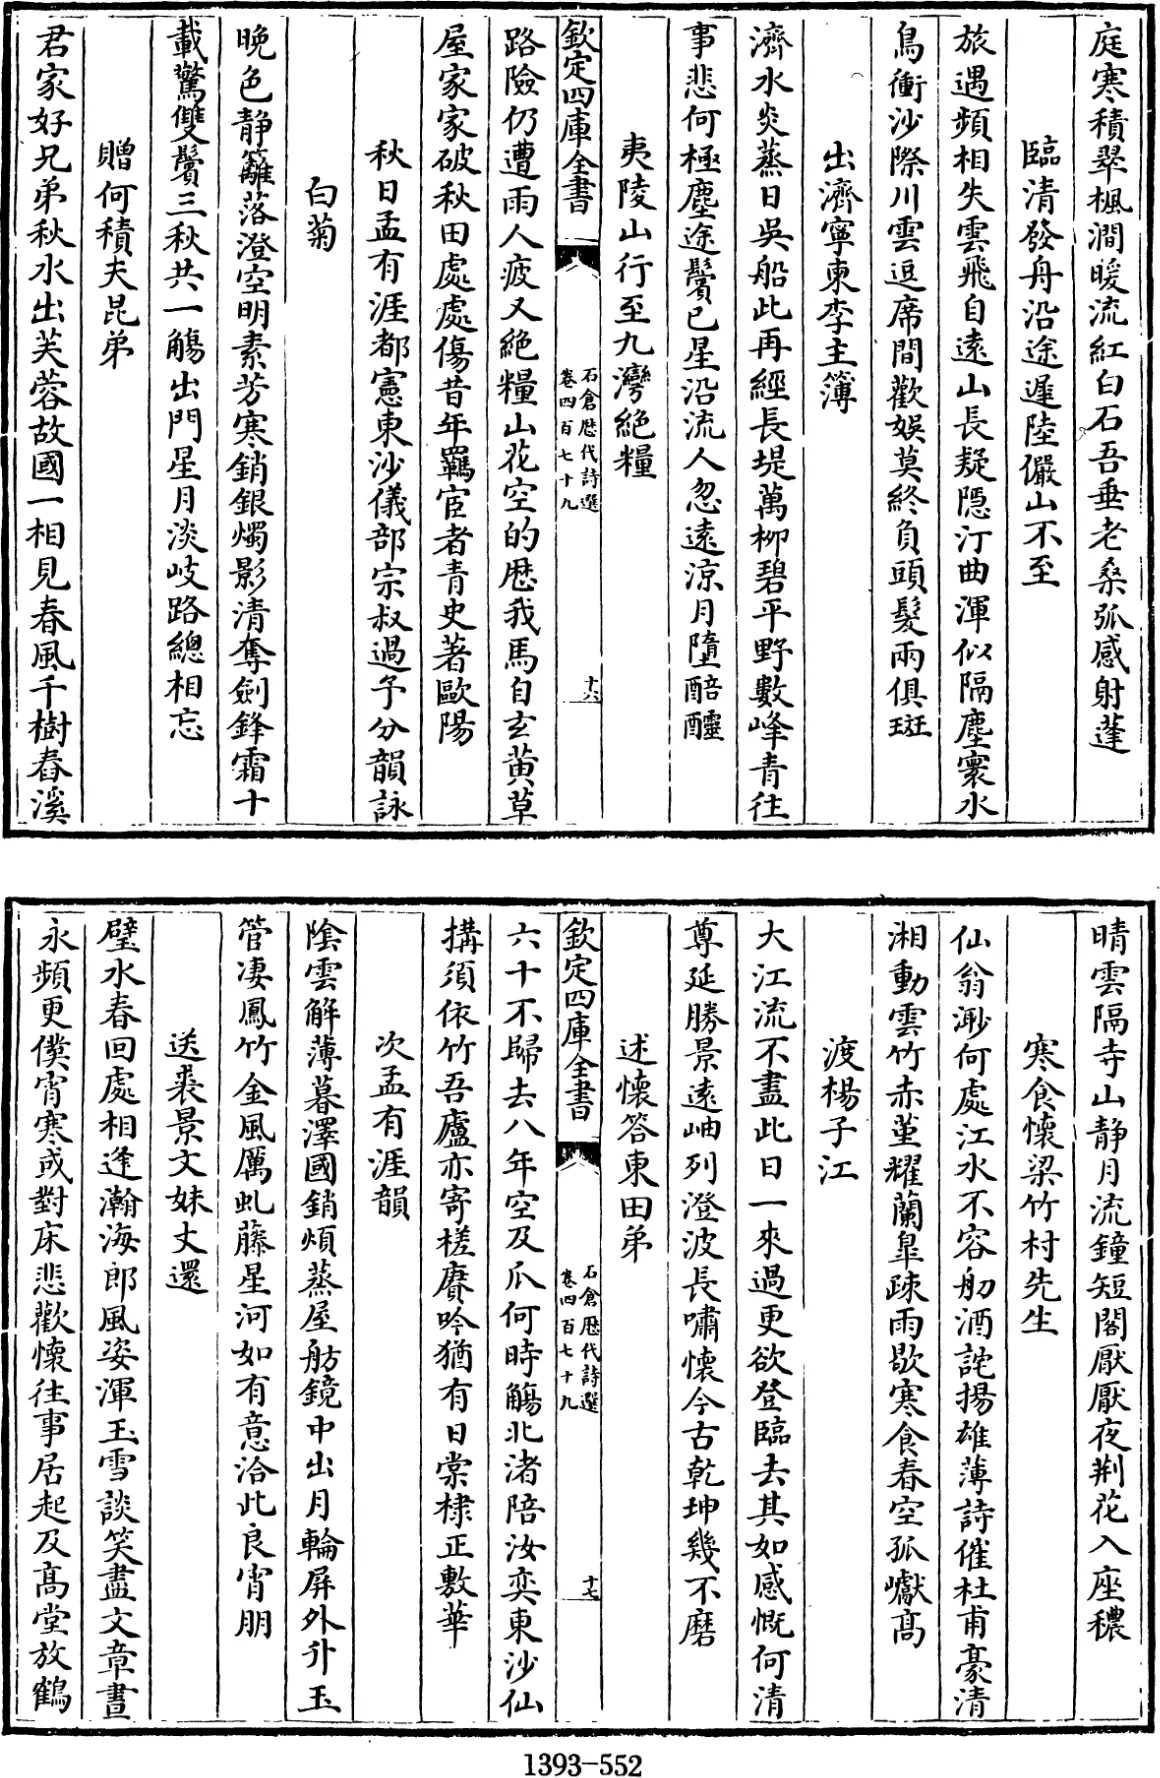 庭寒積翠楓澗暖流紅白石吾垂老桑弧感射蓬
臨清發舟沿途遲陸儼山不至
旅遇頻相失雲飛自遠山長疑隱汀曲渾似隔塵寰水
鳥衝沙際川雲逗席間歡娛莫終負頭髮兩俱斑
出濟寧柬李主簿
濟水炎蒸日吳船此再經長堤萬柳碧平野數峰青往
事悲何極塵途鬢已星沿流人忽遠涼月墮醅醽
夷陵山行至九灣絶糧
欽定四庫全書
石倉歷代詩選
卷四百七十九
十六
路險仍遭雨人疲又絶糧山花空的歷我馬自玄黄草
屋家家破秋田處處傷昔年羈宦者青史著歐陽
秋日孟有涯都憲東沙儀部宗叔過予分韻詠
白菊
晚色静籬落澄空明素芳寒銷銀燭影清奪劍鋒霜十
載驚雙鬢三秋共一觴出門星月淡岐路總相忘
贈何積夫昆弟
君家好兄弟秋水出芙蓉故國一相見春風千樹舂溪
晴雲隔寺山静月流鐘短閣厭厭夜荆花入座穠
寒食懷梁竹村先生
仙翁渺何處江水不容舠酒詫揚雄薄詩催杜甫豪清
湘動雲竹赤堇耀蘭皐疎雨歇寒食春空孤巘髙
渡楊子江
大江流不盡此日一來過更欲登臨去其如感慨何清
尊延勝景遠岫列澄波長嘯懷今古乾坤幾不磨
述懷答東田弟
欽定四庫全書
石倉歷代詩選
卷四百七十九
十七
六十不歸去八年空及瓜何時觴北渚陪汝奕東沙仙
搆須依竹吾廬亦寄槎賡吟猶有日棠棣正敷華
次孟有涯韻
陰雲解薄暮澤國銷煩蒸屋舫鏡中出月輪屏外升玉
管凄鳳竹金風厲虬藤星河如有意洽此良宵朋
送裘景文妹丈還
璧水春回處相逢瀚海郎風姿渾玉雪談笑盡文章晝
永頻更僕宵寒或對床悲歡懷往事居起及髙堂放鶴
1393-552